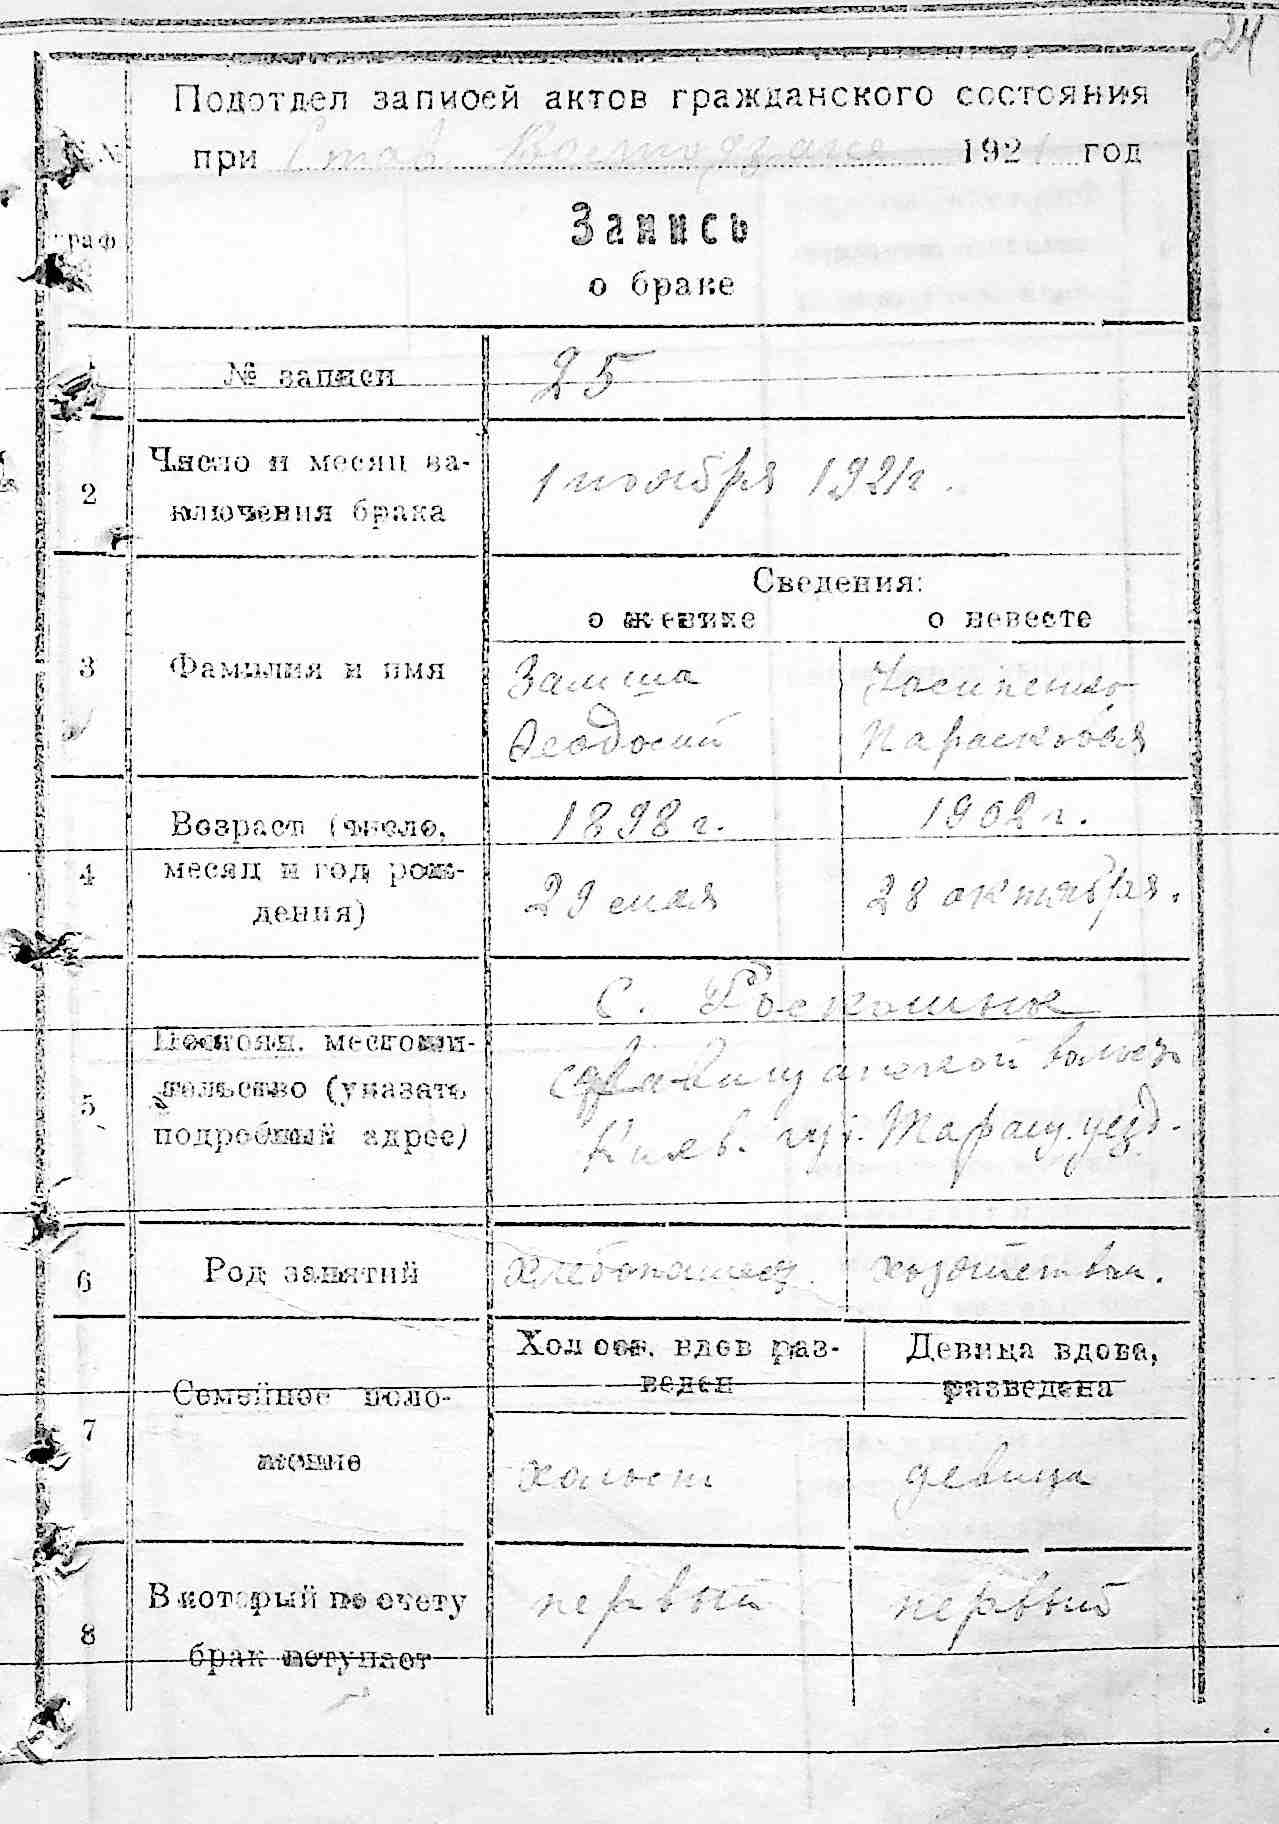 24
Подотдел записей актов гражданского состояния
при Став 1921 год
№№
граф
Запись
о браке
1 № записи 25
2 Число и месяц за-
ключения брака
1 ноября 1921 г.
Сведения:
о женихе о невесте
3 Фамилия и имя
Замша
Феодосий
Йосипенко
Парасковья
4 Возраст (число,
месяц и год рож-
дения)
1898 г.
29 мая
1902 г.
28 октября.
5 Постоян. местожи-
тельство (указать
подробный адрес)
С. Роскошная
Ставищанской волости
Киев. губ. Таращ. уезд.
6 Род занятий хлебопашец. хозяйствен.
Холост, вдов раз-
веден
Девица вдова,
разведена
7 Семейное поло-
жение
холост
девица
8 В который по счету
брак вступает
первый
первый